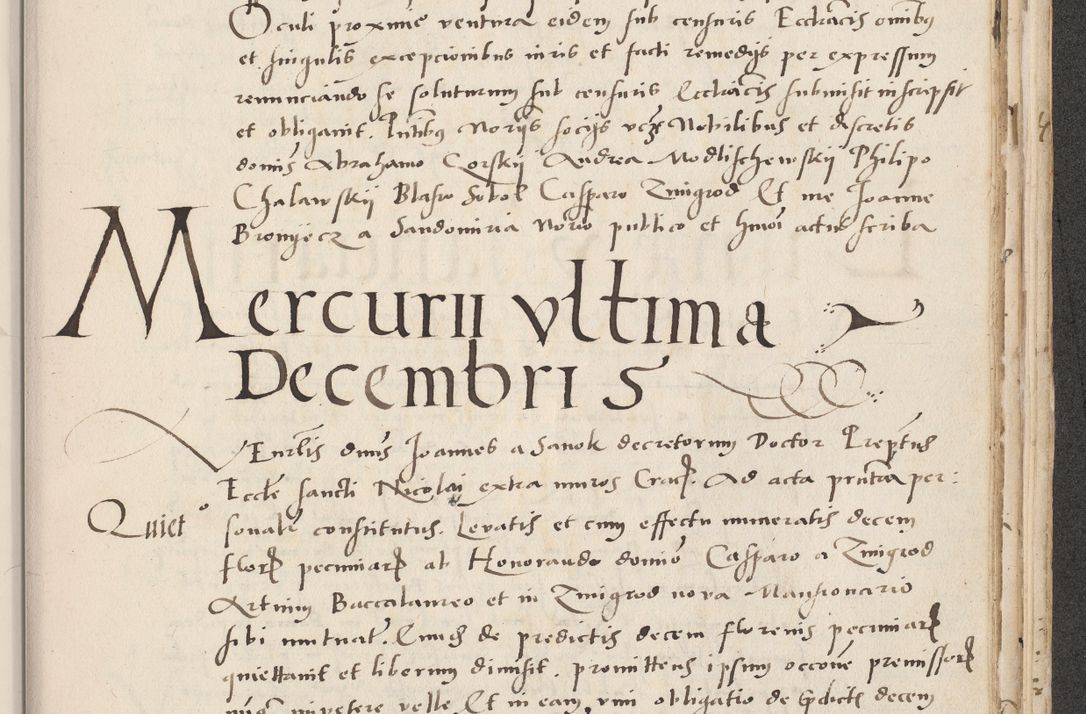 Oculi proxime ventura eidem sub censuris Ecclesiasticis omnibus
et singulis excepcionibus iuris et facti remedijs per expressum
renunciando se soluturum sub censuris Ecclesiasticis submisit inscripsit
et obligavit. Pntibus Notrijs socijs vcz Nobilibus et discretis
domis Abrahamo Gorskij Andrea Modlischewskij Philipo
Chalawskij Blasio Sobol Casparo Zmigrod Et me Joanne
Bromijecz a Sandomiria Notrio publico et hmoi actus scriba
Mercurii vltima
Decembris
VEnrlis dnus Joannes a Sanok decretorum Doctor Preptus
Eccle sancti Nicolaj extra muros Crac. Ad acta pntia per:
Quiet
sonalr constitutus. Levatis et cum effectu numeratis decem
flor pecuniar ab Honorando domino Casparo a Zmigrod
Artium Baccalaureo et in Zmigrod nova Mansionario
sibi mutuat. Eundem de predictis decem florenis pecuniar
quiettavit et liberum dimisit. promittens ipsum occone premissor
nunq impetere velle Et in eam, vim obligatio de pdictis decem